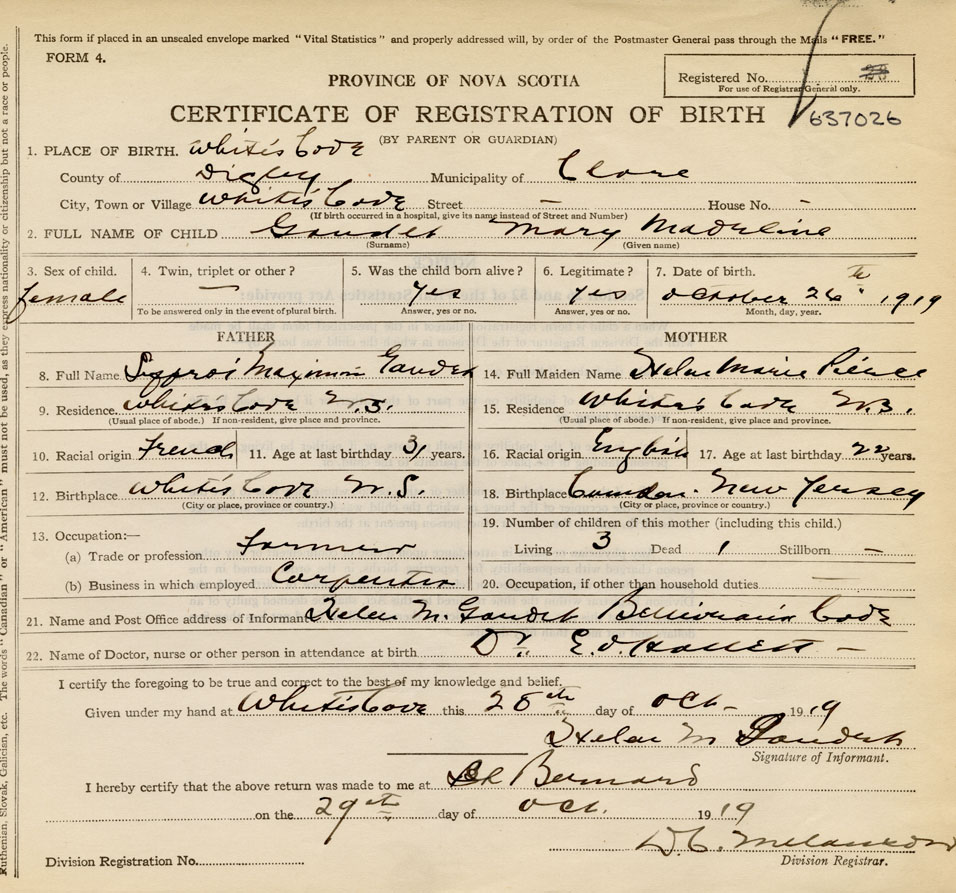 This form if placed in an unsealed envelope marked "Vital Statistics" and properly addressed will, by order of the Postmaster General pass through the Mails "FREE."
FORM 4.
Registered No.
For use of Registrar General only.
PROVINCE OF NOVA SCOTIA
CERTIFICATE OF REGISTRATION OF BIRTH
637026
(BY PARENT OR GUARDIAN)
1. PLACE OF BIRTH. White's Cove
County of Digby Municipality of Clare
City, Town or Village White's Cove Street — House No. —
(If birth occurred in a hospital, give its name instead of Street and Number)
2. FULL NAME OF CHILD Gaudet Mary Madeline
(Surname) (Given name)
3. Sex of child. 4. Twin, triplet or other? 5. Was the child born alive? 6. Legitimate? 7. Date of birth.
female — yes yes October 26th 1919
To be answered only in the event of plural birth. Answer, yes or no. Answer, yes or no. Month, day, year.
FATHER MOTHER
8. Full Name Maximin Gaudet 14. Full Maiden Name Helen Marie Pierce
9. Residence White's Cove N.S. 15. Residence White's Cove N.S.
(Usual place of abode.) If non-resident, give place and province. (Usual place of abode.) If non-resident, give place and province.
10. Racial origin French 11. Age at last birthday 31 years. 16. Racial origin English 17. Age at last birthday 22 years.
12. Birthplace White's Cove N.S. 18. Birthplace Camden. New Jersey
(City or place, province or country.) (City or place, province or country.)
13. Occupation:— 19. Number of children of this mother (including this child.)
(a) Trade or profession Farmer Living 3 Dead 1 Stillborn —
(b) Business in which employed Carpenter 20. Occupation, if other than household duties —
21. Name and Post Office address of Informant Helen M. Gaudet Belliveau's Cove
22. Name of Doctor, nurse or other person in attendance at birth Dr. —
I certify the foregoing to be true and correct to the best of my knowledge and belief.
Given under my hand at White's Cove this 28th day of Oct- 1919
Helen M Gaudet
Signature of Informant.
I hereby certify that the above return was made to me at Bernard
on the 29th day of Oct. 1919
Division Registration No. Division Registrar.
Ruthenian, Slovak, Galician, etc. The words "Canadian" or "American" must not be used, as they express nationality or citizenship but not a race or people.